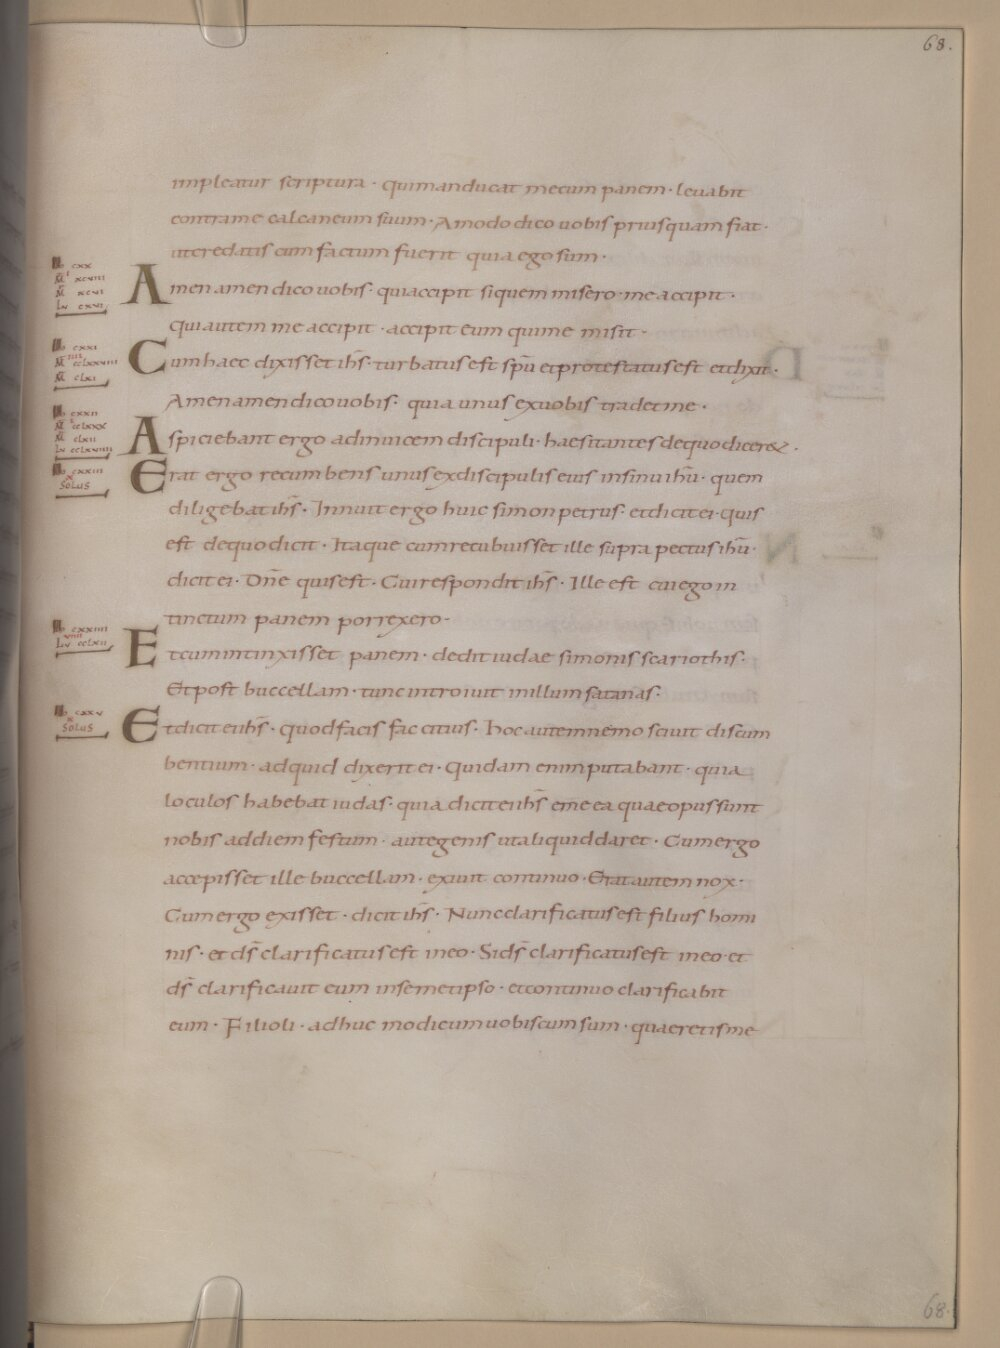 68.
impleatur scriptura · quimanducat mecum panem · leuabit
contrame calcaneum suum · Amodo dico uobis priusquam fiat ·
utcredatis cum factum fuerit quia ego sum ·
Amen amen dico uobis · quiaccipit siquem misero · me accipit ·
qui autem me accipit · accipit eum quime misit ·
Cum haec dixisset ihs̄ · turbatus est spū et protestatus est et dixit ·
Amen amen dico uobis · quia unus exuobis tradet me ·
Aspiciebant ergo adinuicem discipuli · haesitantes dequo dicer& ·
Erat ergo recumbens unus exdiscipulis eius insinu ihū · quem
diligebat ihs̄ · Innuit ergo huic simon petrus · et dicit ei · quis
est dequo dicit · Itaque cum recubuisset ille supra pectus ihū ·
dicit ei · Dn̄e quis est · Cui respondit ihs̄ · Ille est cui ego in
tinctum panem porrexero ·
Et cum intinxisset panem · dedit iudae simonis scariothis ·
Et post buccellam · tunc introiuit inillum satanas ·
Et dicit ei ihs̄ · quod facis fac citius · hoc autem nemo sciuit discum
bentium · adquid dixerit ei · quidam enim putabant · quia
loculos habebat iudas · quia dicit ei ihs̄ eme ea quae opus sunt
nobis addiem festum · aut egenis ut aliquid daret · Cum ergo
accepisset ille buccellam · exiuit continuo · Erat autem nox ·
Cum ergo exisset · dicit ihs̄ · Nunc clarificatus est filius homi
nis · et ds̄ clarificatus est ineo · Si ds̄ clarificatus est ineo · et
ds̄ clarificauit eum insemetipso · et continuo clarificabit
eum · Filioli · adhuc modicum uobiscum sum · quaeretis me
cxx
xcviiii
xcvi
cxvi
cxxi
cclxxviiii
clxi
cxxii
cclxxx
clxii
cclxviiii
cxxiii
x
SOLUS
cxxiiii
viiii
cclxii
cxxv
x
SOLUS
68.